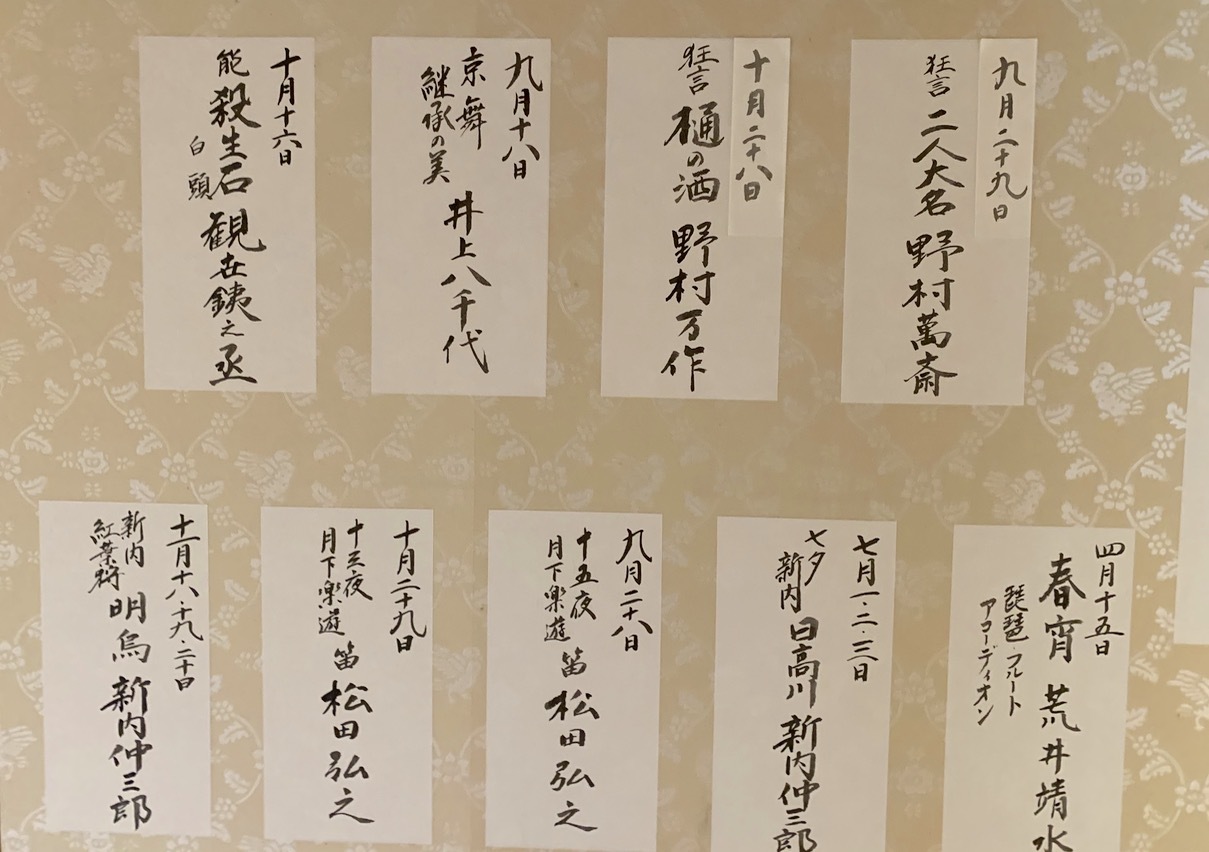 九月二十九日
狂言 二人大名 野村萬斎
十月二十八日
狂言 樋の酒 野村万作
九月十八日
京舞
継承の美 井上八千代
十月十六日
能 殺生石 観世銕之丞
白頭
四月十五日
春宵 荒井靖水
琵琶・フルート
アコーディオン
七月一・二・三日
七夕
新内 日高川 新内仲三郎
九月二十八日
十五夜
月下楽遊 笛 松田弘之
十月二十九日
十三夜
月下楽遊 笛 松田弘之
十一月十八・十九・二十日
新内 明烏 新内仲三郎
紅葉狩